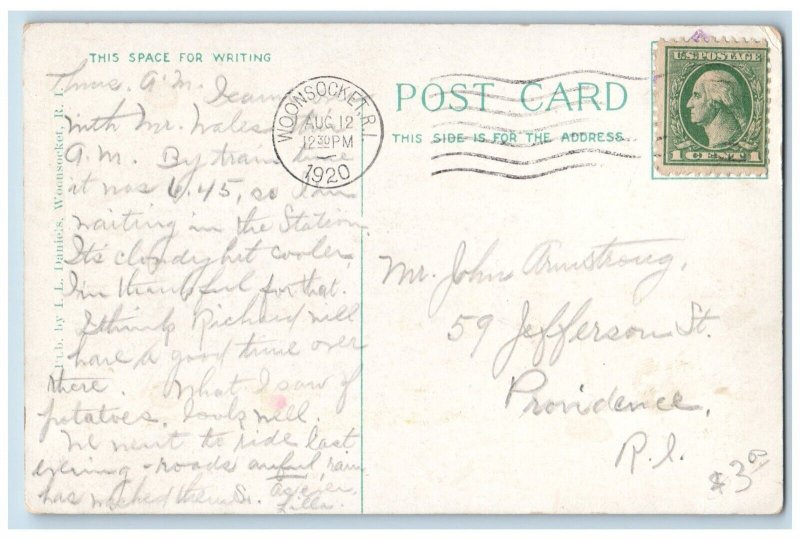 THIS SPACE FOR WRITING
Thurs. A.M. I came
with Mr. Wales this
A.M. By train time
it was 6.45, so I'm
waiting in the Station.
It's cloudy but cooler,
I'm thankful for that.
I think Richard will
have a good time over
there. What I saw of
potatoes, looks well.
We went to ride last
evening - roads awful, rain
has washed them so.
Lilla.
Pub. by I. L. Daniels, Woonsocket, R. I.
WOONSOCKET, R.I.
AUG 12
12 30 PM
1920
POST CARD
THIS SIDE IS FOR THE ADDRESS
U.S. POSTAGE
1 CENT 1
Mr. John Armstrong,
59 Jefferson St.
Providence,
R.I.
$3.00